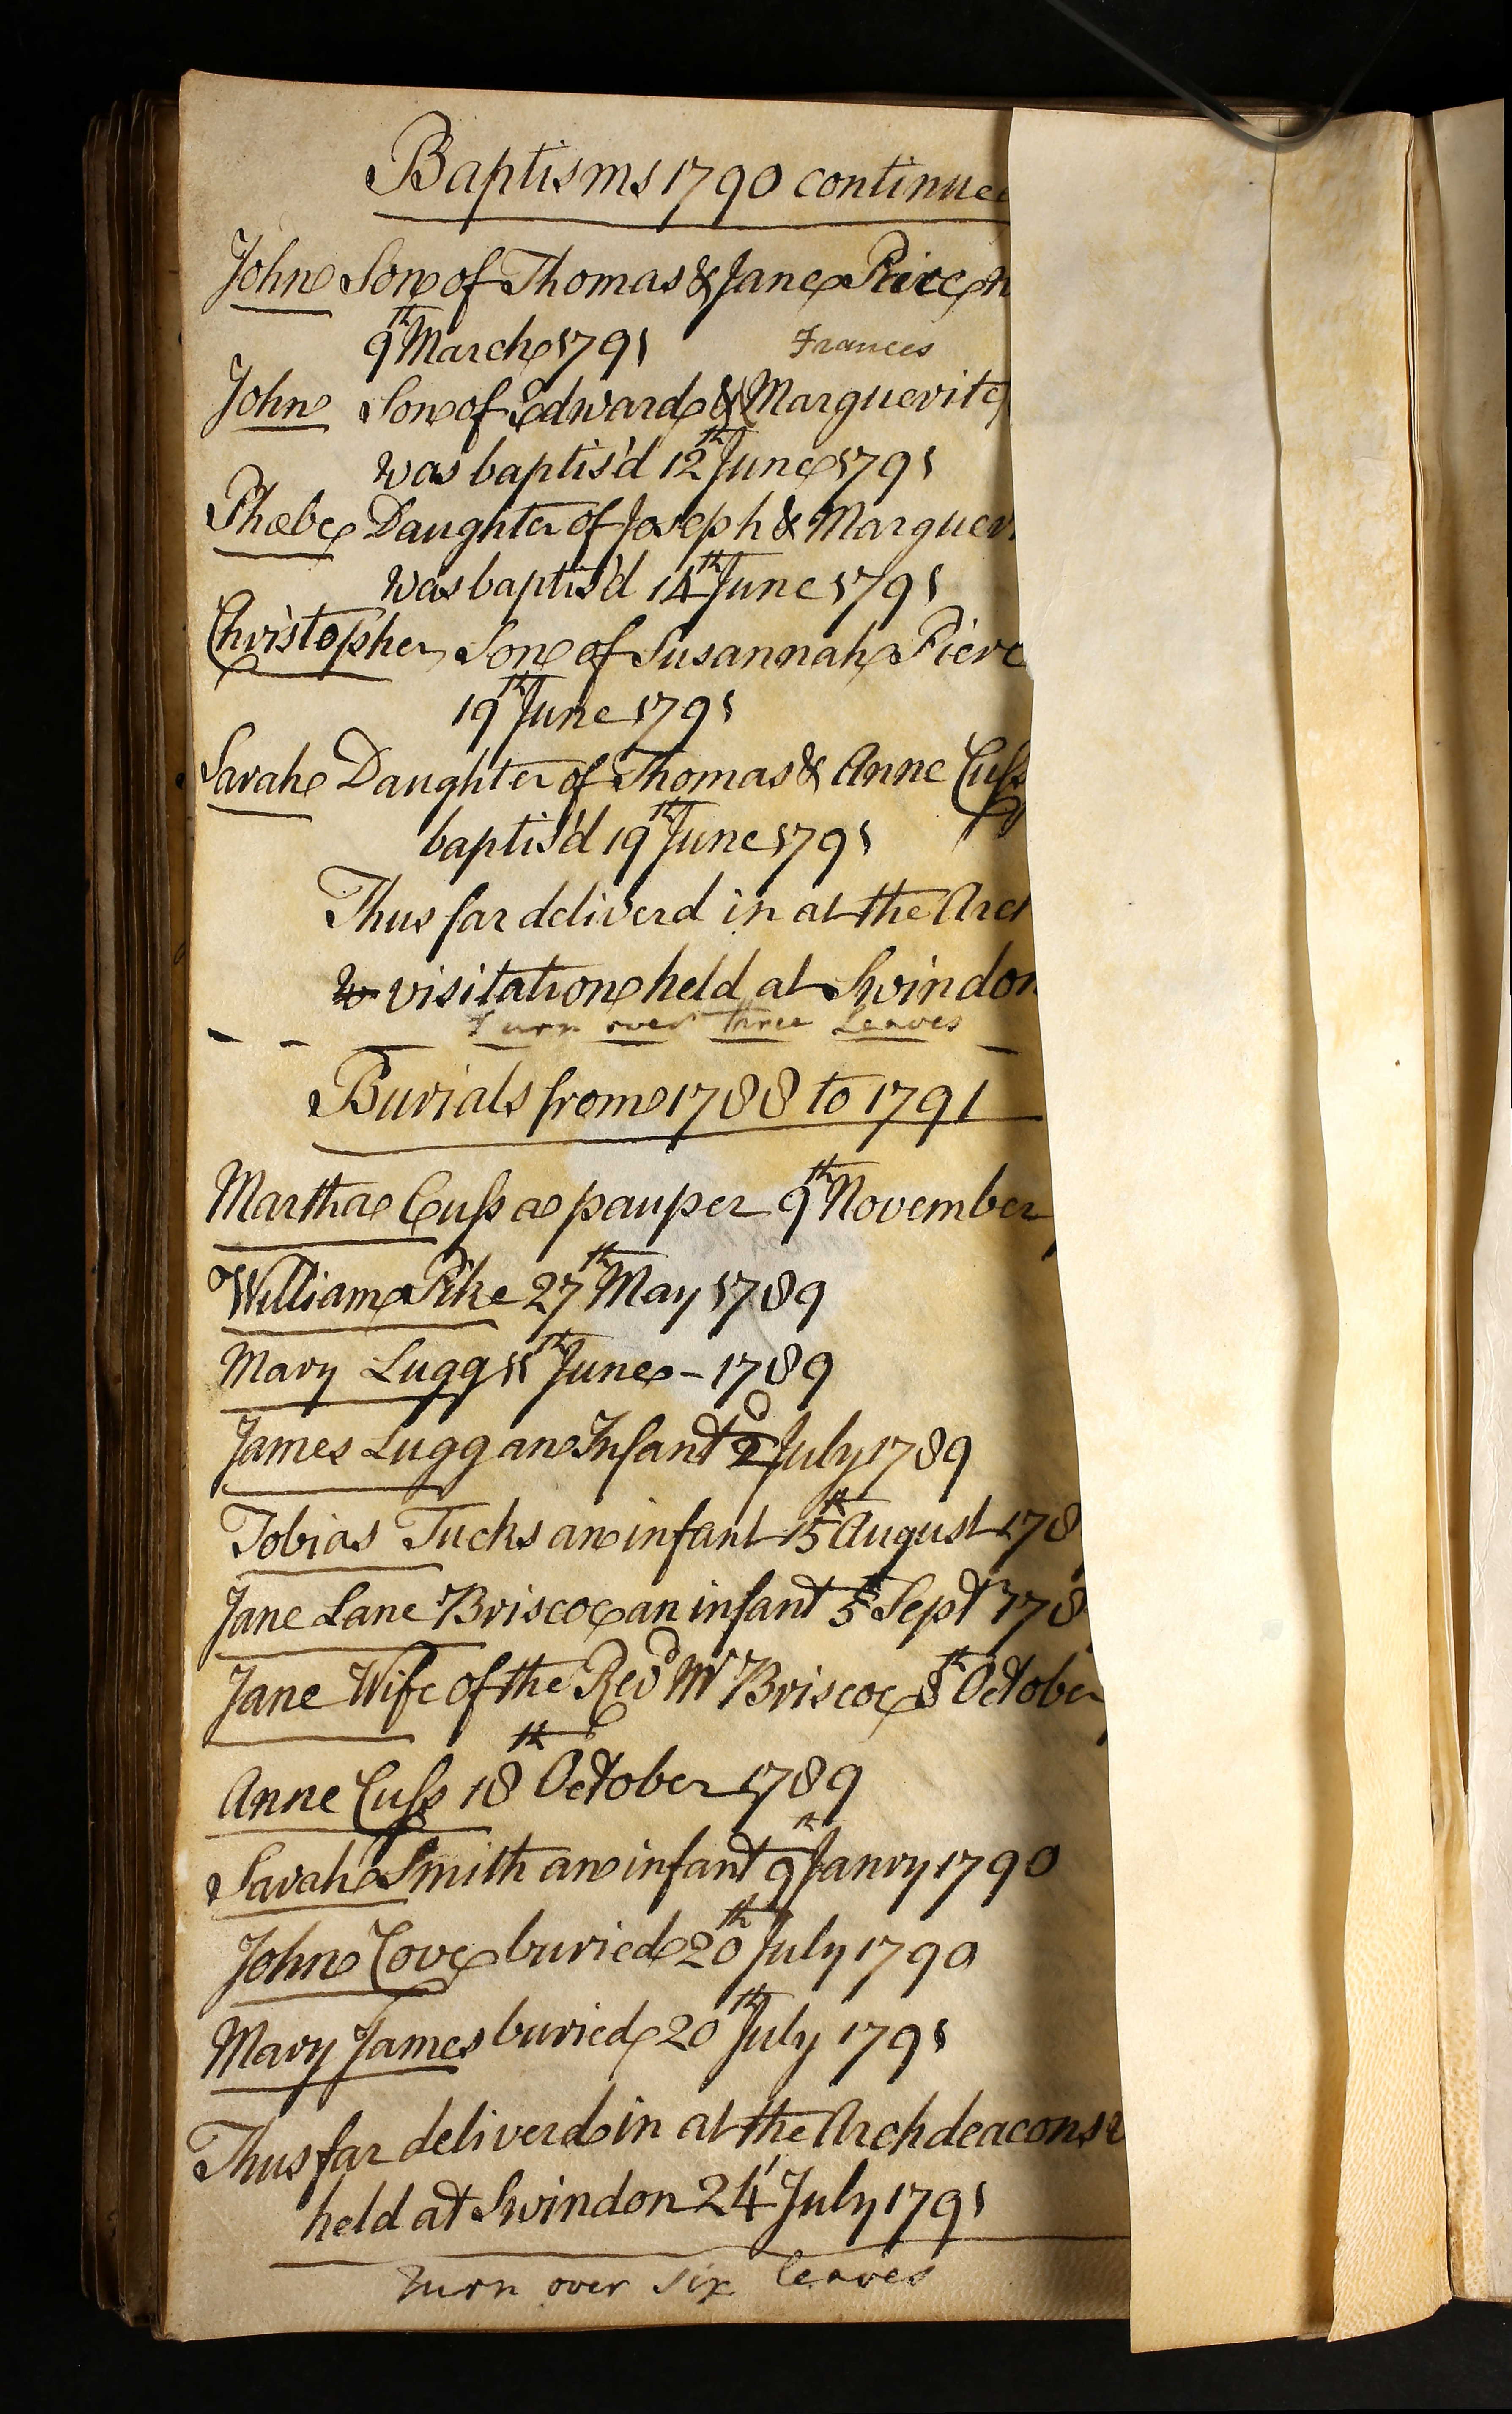 Baptisms 1790 continued
John Son of Thomas & Jane Peirce
9th March 1791
Frances
John Son of Edward & Marguerite
was baptis'd 12th June 1791
Phœbe Daughter of Joseph & Marguer
was baptis'd 14th June 1791
Christopher Son of Susannah Pierc
19th June 1791
Sarah Daughter of Thomas & Anne Cuss
baptis'd 19th June 1791
Thus far deliverd in at the Arch
visitation held at Swindon
Turn over three Leaves
Burials from 1788 to 1791
Martha Cuss a pauper 9th November
William Pike 27th May 1789
Mary Lugg 11th June - 1789
James Lugg an Infant 2d July 1789
Tobias Tucks an infant 15th August 178
Jane Lane Briscoe an infant 5th Sept 178
Jane Wife of the Revd Mr Briscoe 8th October
Anne Cuss 18th October 1789
Sarah Smith an infant 9th Janry 1790
John Cove buried 20th July 1790
Mary James buried 20th July 1791
Thus far deliverd in at the Archdeacons
held at Swindon 24 July 1791
Turn over six leaves